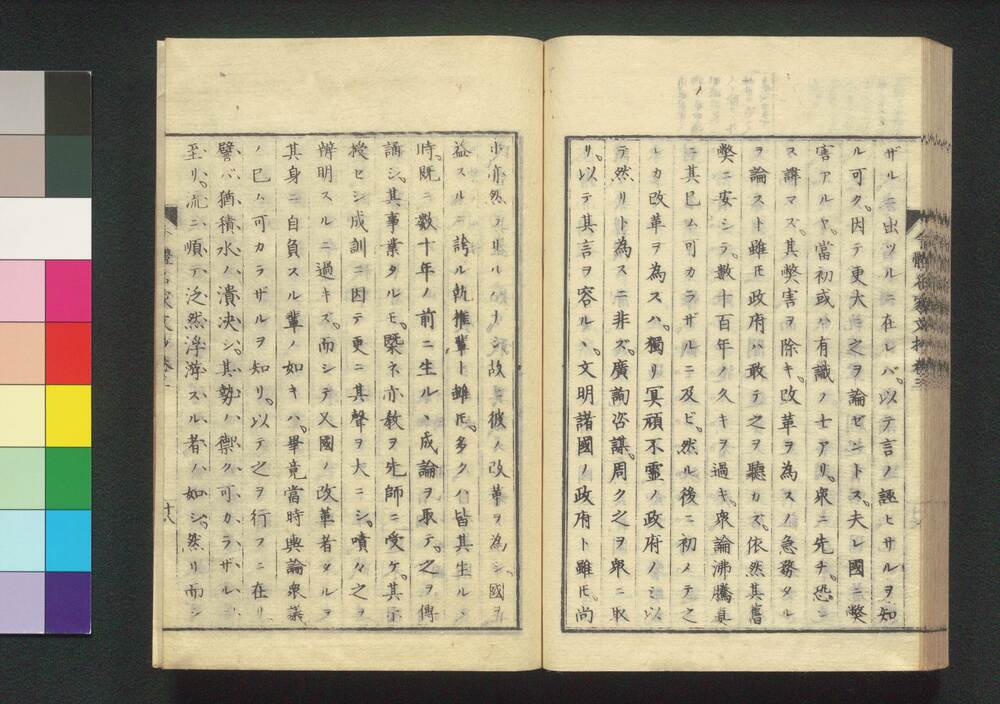 ザルニ出ツルニ在レバ。以テ言ノ誣ヒサルヲ知
ル可ク。因テ更大ニ之ヲ論ゼントス。夫レ國ニ弊
害アルヤ。當初或ハ有識ノ士アリ。衆ニ先チ。恐レ
ス諱マズ。其弊害ヲ除キ。改革ヲ為スノ急務タル
ヲ論スト雖𪜈政府ハ敢テ之ヲ聽カズ。依然其舊
弊ニ安シテ。數十百年ノ久キヲ過キ。衆論沸騰真
ニ其已ム可カラザルニ及ビ。然ル後ニ初メテ之
レカ改革ヲ為スハ。獨リ冥頑不靈ノ政府ノミ以
テ然リト為スニ非ズ。廣詢咨謀。周ク之ヲ衆ニ取
リ。以テ其言ヲ容ルヽ、文明諸國ノ政府ト雖𪜈。尚
小亦然ラザルハナシ故ニ彼ノ改革ヲ為シ。國ヲ
益スルニ誇ル執権輩ト雖𪜈。多クハ皆其生ルヽ
時。既ニ數十年ノ前ニ生ルヽ成論ヲ取テ。之ヲ傳
誦シ。其事業タルモ。槩ネ亦教ヲ先師ニ受ケ。其示
授セシ成訓ニ因テ更ニ其聲ヲ大ニシ。嘖々之ヲ
辨明スルニ過キズ。而シテ又國ノ改革者タルヲ
其身ニ自負スル輩ノ如キハ。畢竟當時輿論衆議
ノ已ム可カラザルヲ知リ。以テ之ヲ行フニ在リ
譬バ猶積水ノ潰決シ。其勢ノ禦ク可カラザルニ
至リ。流ニ順テ泛然浮游スル者ハ如シ。然リ而シ
今體名家文抄 卷三
廿八